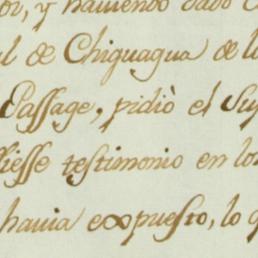 or, y haviendo dado
l de Chiguagua de l
Passage, pidiò el Su
iesse testimonio en lo
havia expuesto, lo q